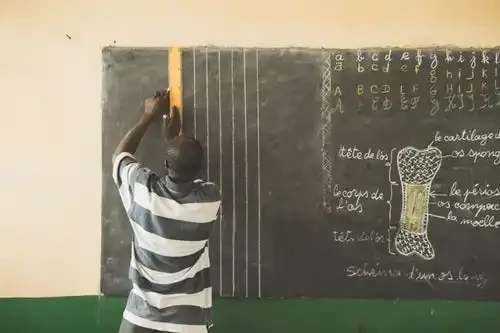 a b c d e f g h i j k l
a b c d e f g h i j k l
A B C D E F G H I J K L
A B C D E F G H I J K
le cartilage d
tête de l'os
os spong
le corps de l'os
le périos
os compac
la moelle
tête de l'os
schéma d'un os long